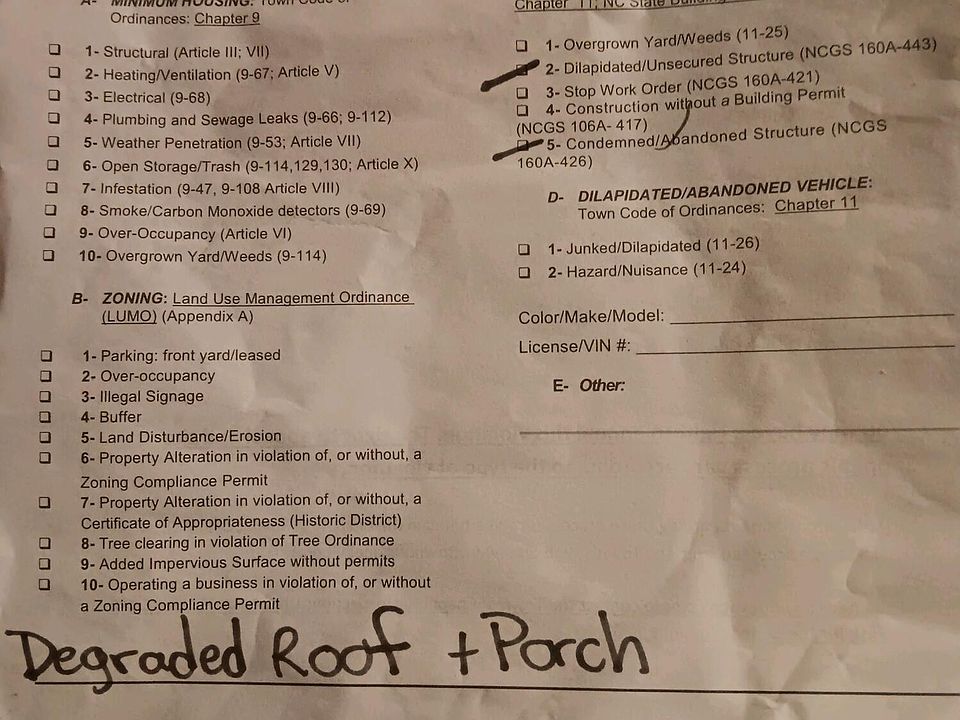 A- MINIMUM HOUSING: Town Code of
Ordinances: Chapter 9
❑ 1- Structural (Article III; VII)
❑ 2- Heating/Ventilation (9-67; Article V)
❑ 3- Electrical (9-68)
❑ 4- Plumbing and Sewage Leaks (9-66; 9-112)
❑ 5- Weather Penetration (9-53; Article VII)
❑ 6- Open Storage/Trash (9-114,129,130; Article X)
❑ 7- Infestation (9-47, 9-108 Article VIII)
❑ 8- Smoke/Carbon Monoxide detectors (9-69)
❑ 9- Over-Occupancy (Article VI)
❑ 10- Overgrown Yard/Weeds (9-114)
B- ZONING: Land Use Management Ordinance
(LUMO) (Appendix A)
❑ 1- Parking: front yard/leased
❑ 2- Over-occupancy
❑ 3- Illegal Signage
❑ 4- Buffer
❑ 5- Land Disturbance/Erosion
❑ 6- Property Alteration in violation of, or without, a
Zoning Compliance Permit
❑ 7- Property Alteration in violation of, or without, a
Certificate of Appropriateness (Historic District)
❑ 8- Tree clearing in violation of Tree Ordinance
❑ 9- Added Impervious Surface without permits
❑ 10- Operating a business in violation of, or without
a Zoning Compliance Permit
Chapter 11; NC State Building
❑ 1- Overgrown Yard/Weeds (11-25)
❑ 2- Dilapidated/Unsecured Structure (NCGS 160A-443)
❑ 3- Stop Work Order (NCGS 160A-421)
❑ 4- Construction without a Building Permit
(NCGS 106A- 417)
❑ 5- Condemned/Abandoned Structure (NCGS
160A-426)
D- DILAPIDATED/ABANDONED VEHICLE:
Town Code of Ordinances: Chapter 11
❑ 1- Junked/Dilapidated (11-26)
❑ 2- Hazard/Nuisance (11-24)
Color/Make/Model:
License/VIN #:
E- Other:
Degraded Roof + Porch